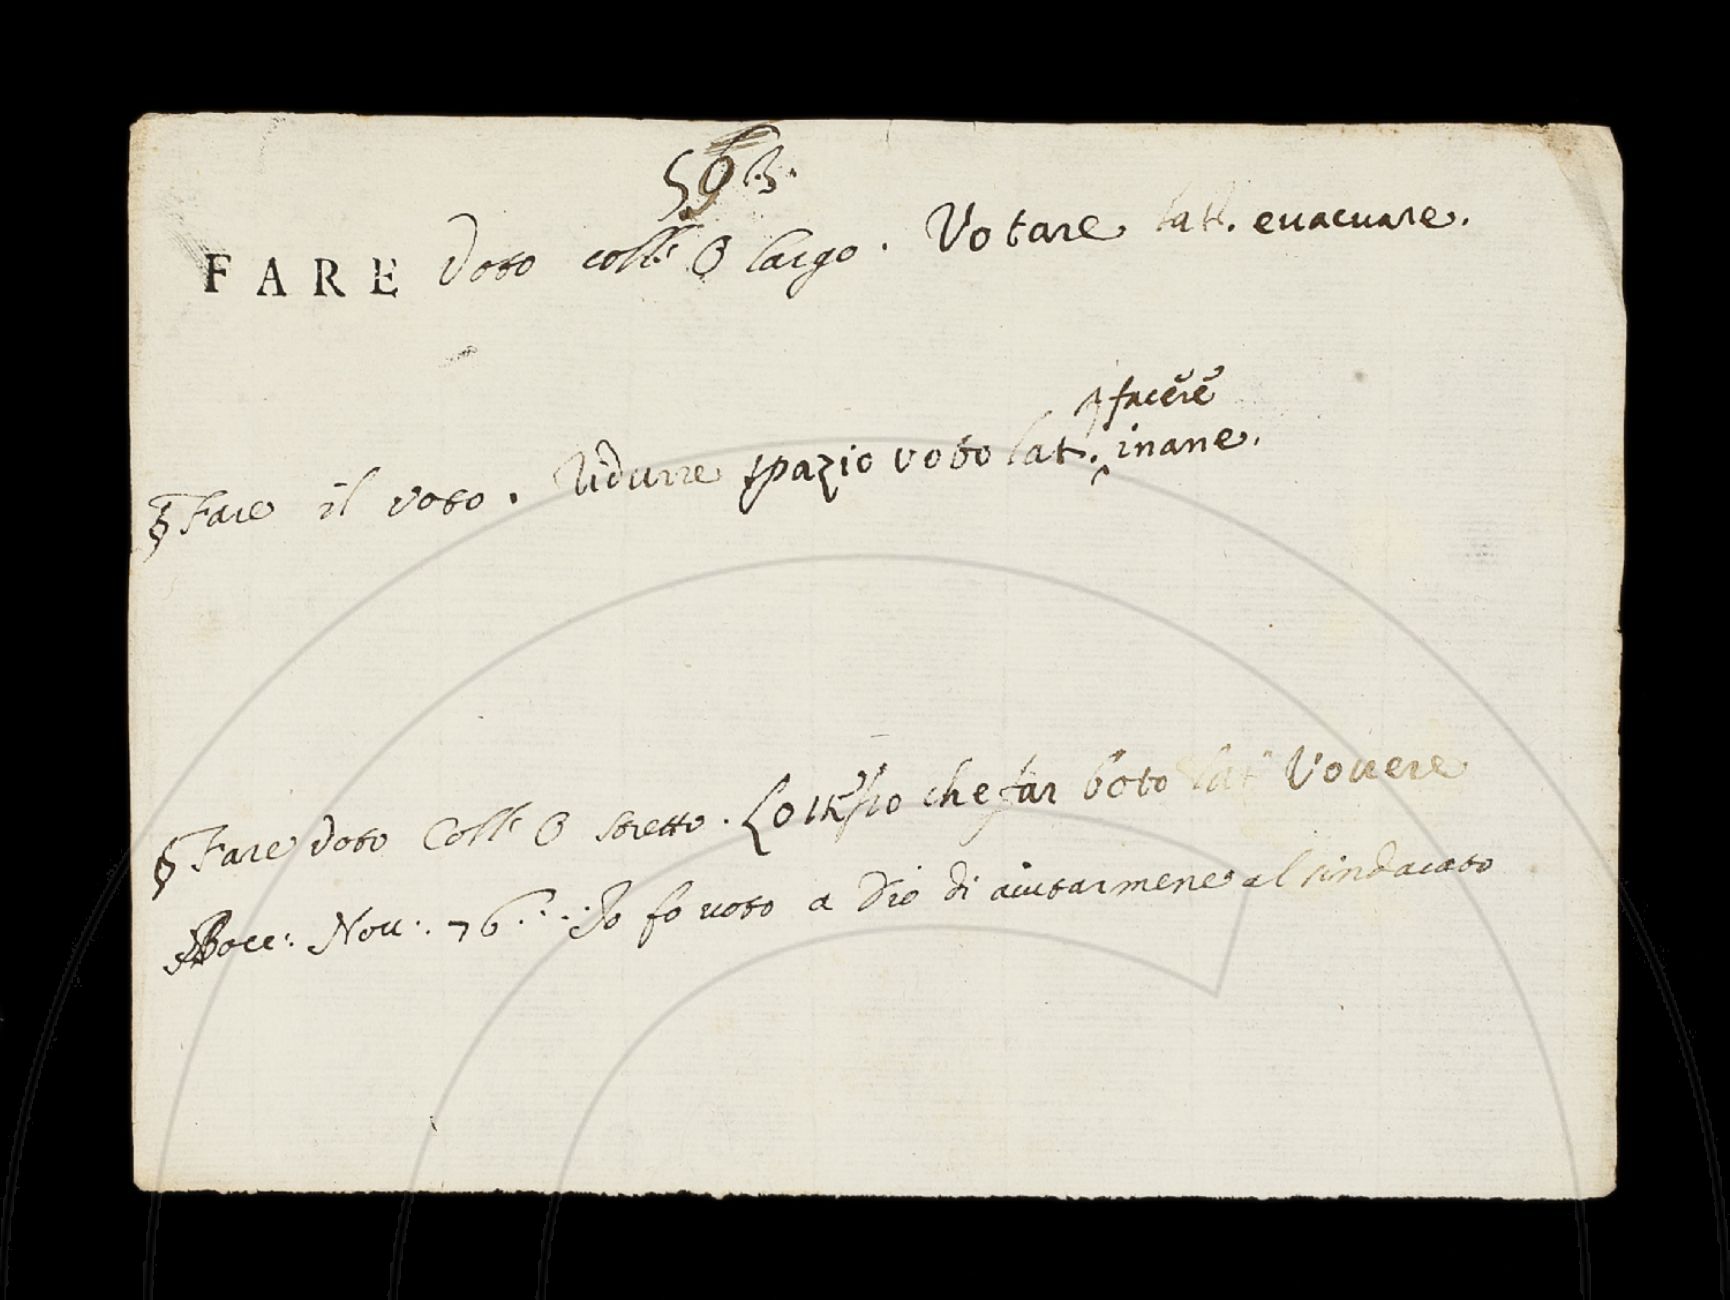 563.
FARE voto coll' O largo. Votare lat. evacuare.
facere
§ Fare il voto. Ridurre spazio voto lat. inane.
§ Fare voto Coll' O stretto. Lo stesso che far boto lat. Vovere
Bocc: Nov: 76. Io fo voto a Dio di aiutarmene al sindacato